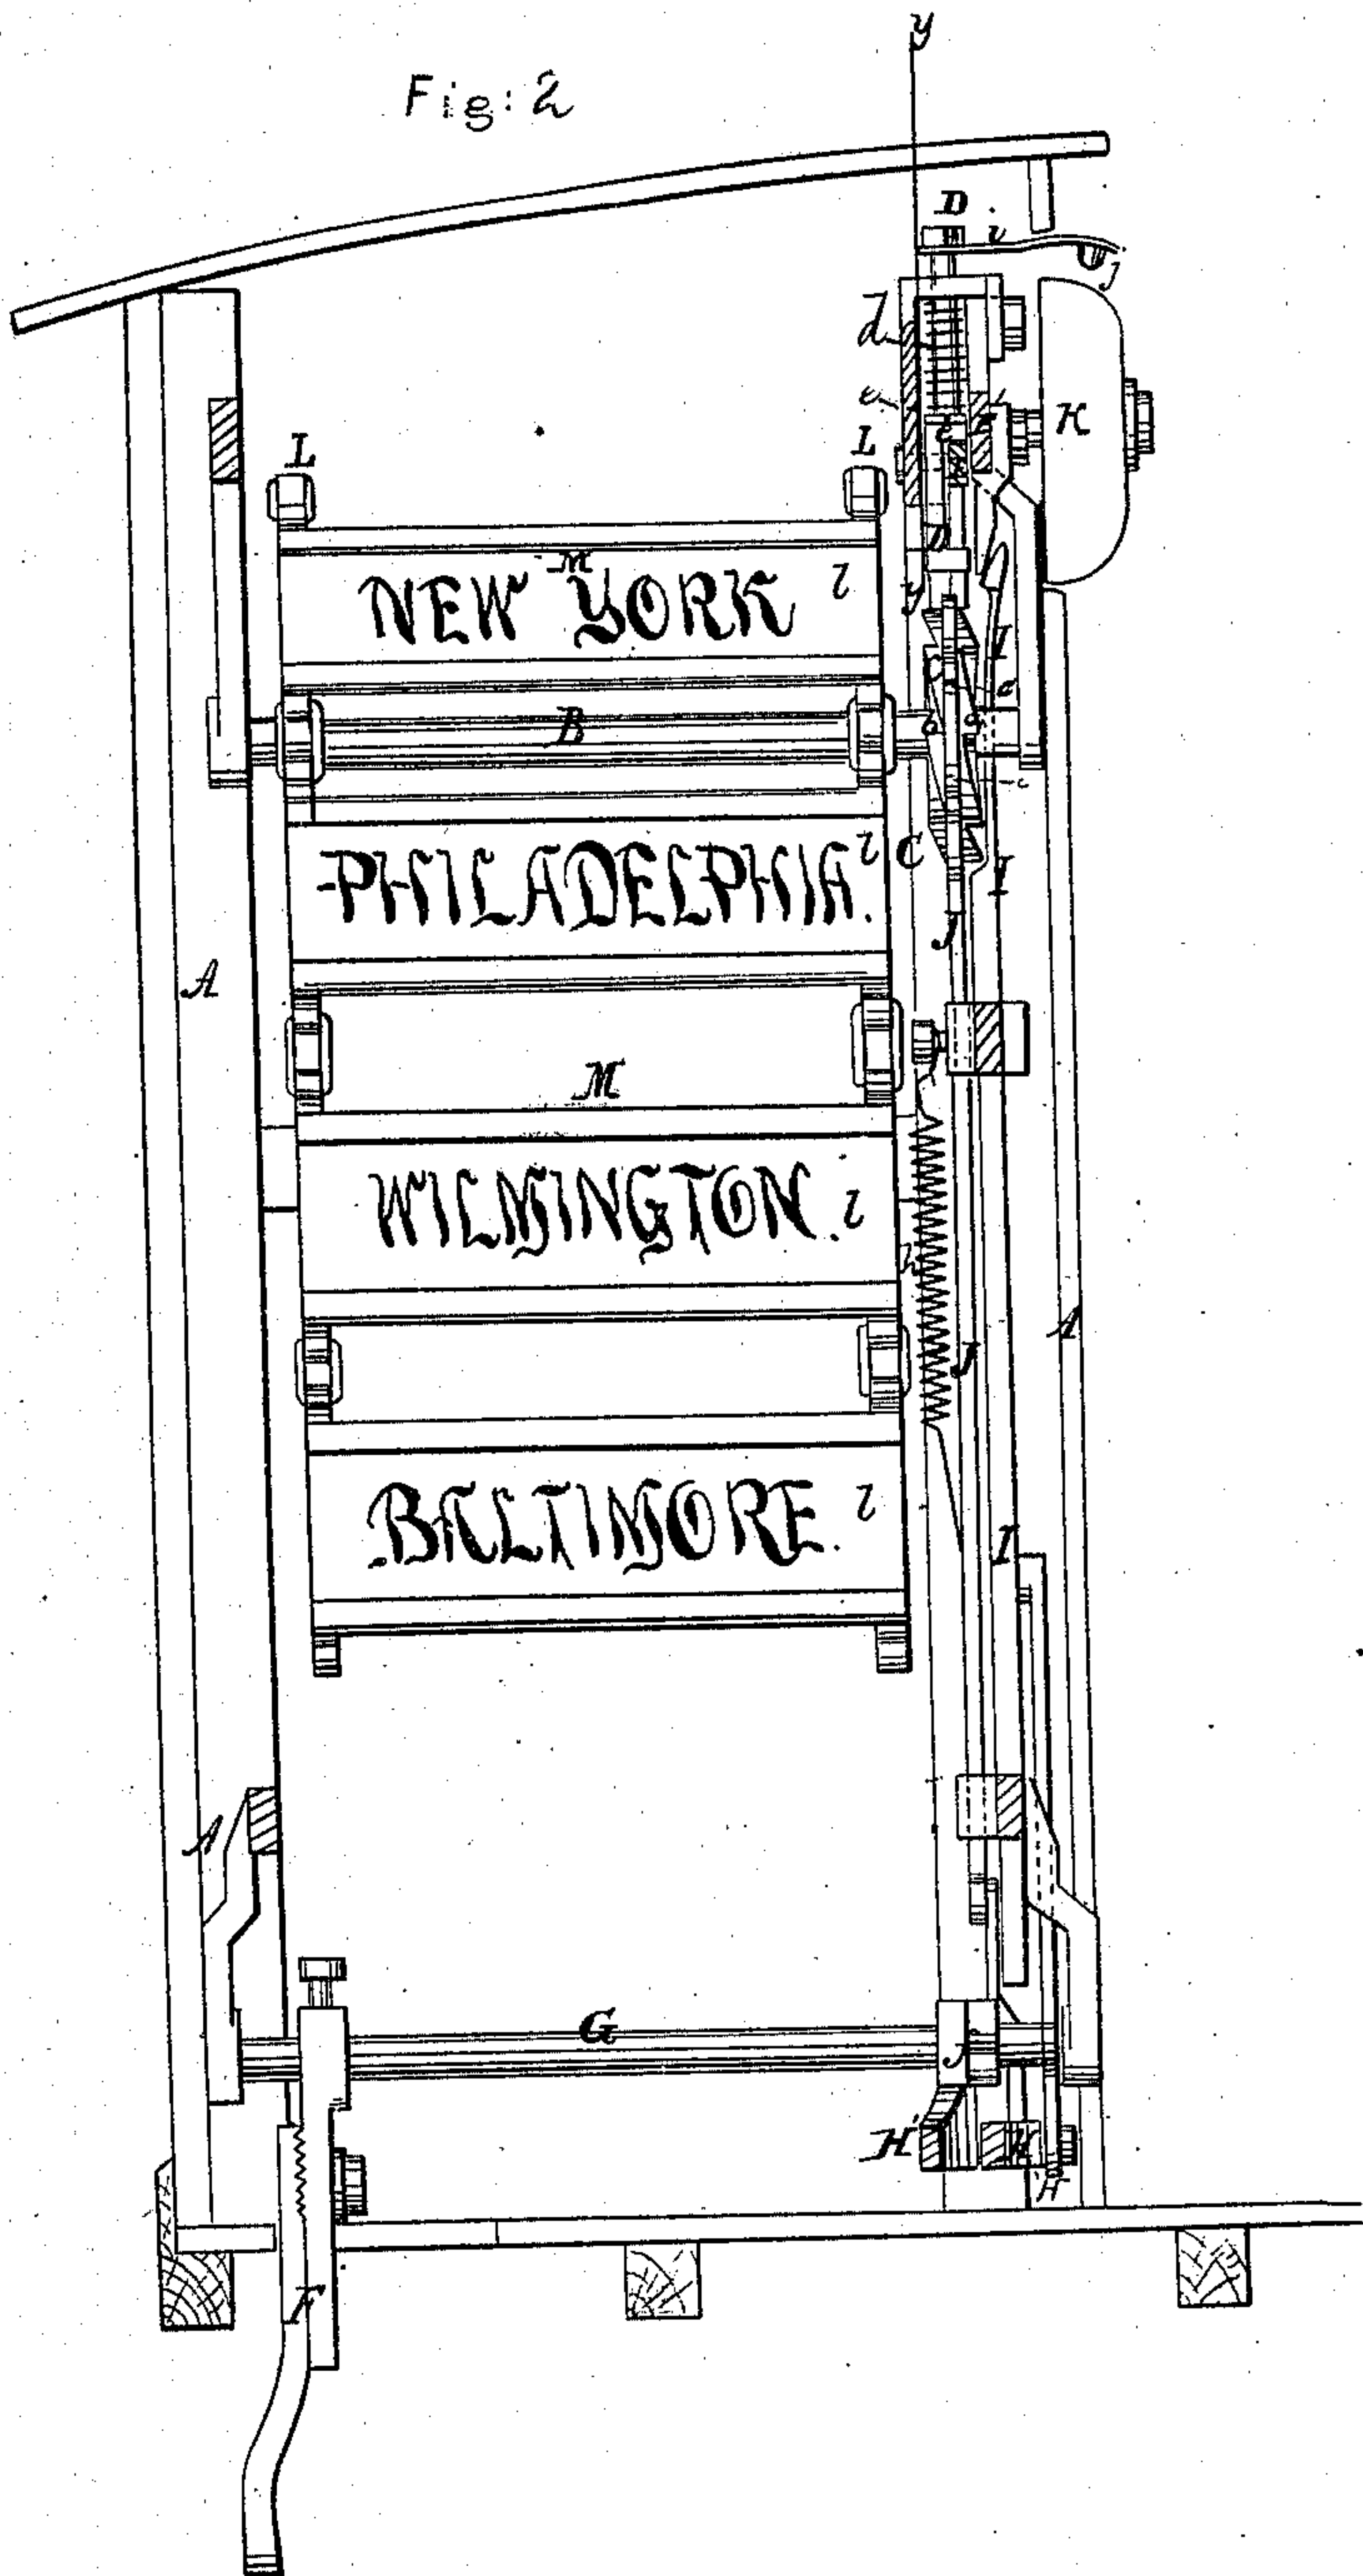 y
Fig: 2
D
i
j
d
e
K
L
L
e
E
D
M
NEW YORK
l
y
I
c
B
b
a
c
PHILADELPHIA.
l
C
I
J
A
M
WILMINGTON.
l
h
A
J
BALTIMORE.
l
I
A
G
J
H'
H
H
F